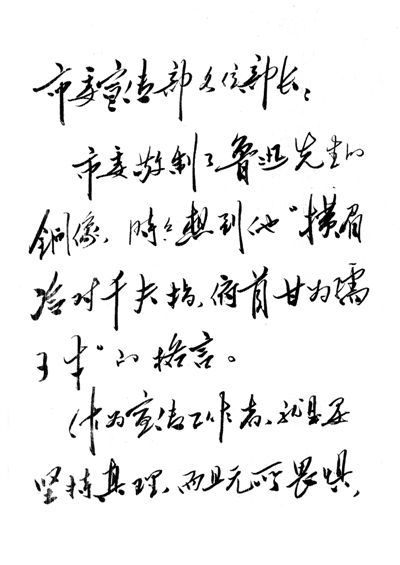 市委宣传部各位部长：
市委敬制了鲁迅先生的
铜像，时々想到他“横眉
冷对千夫指，俯首甘为孺
子牛”的格言。
作为宣传工作者，就是要
坚持真理，而且无所畏惧，